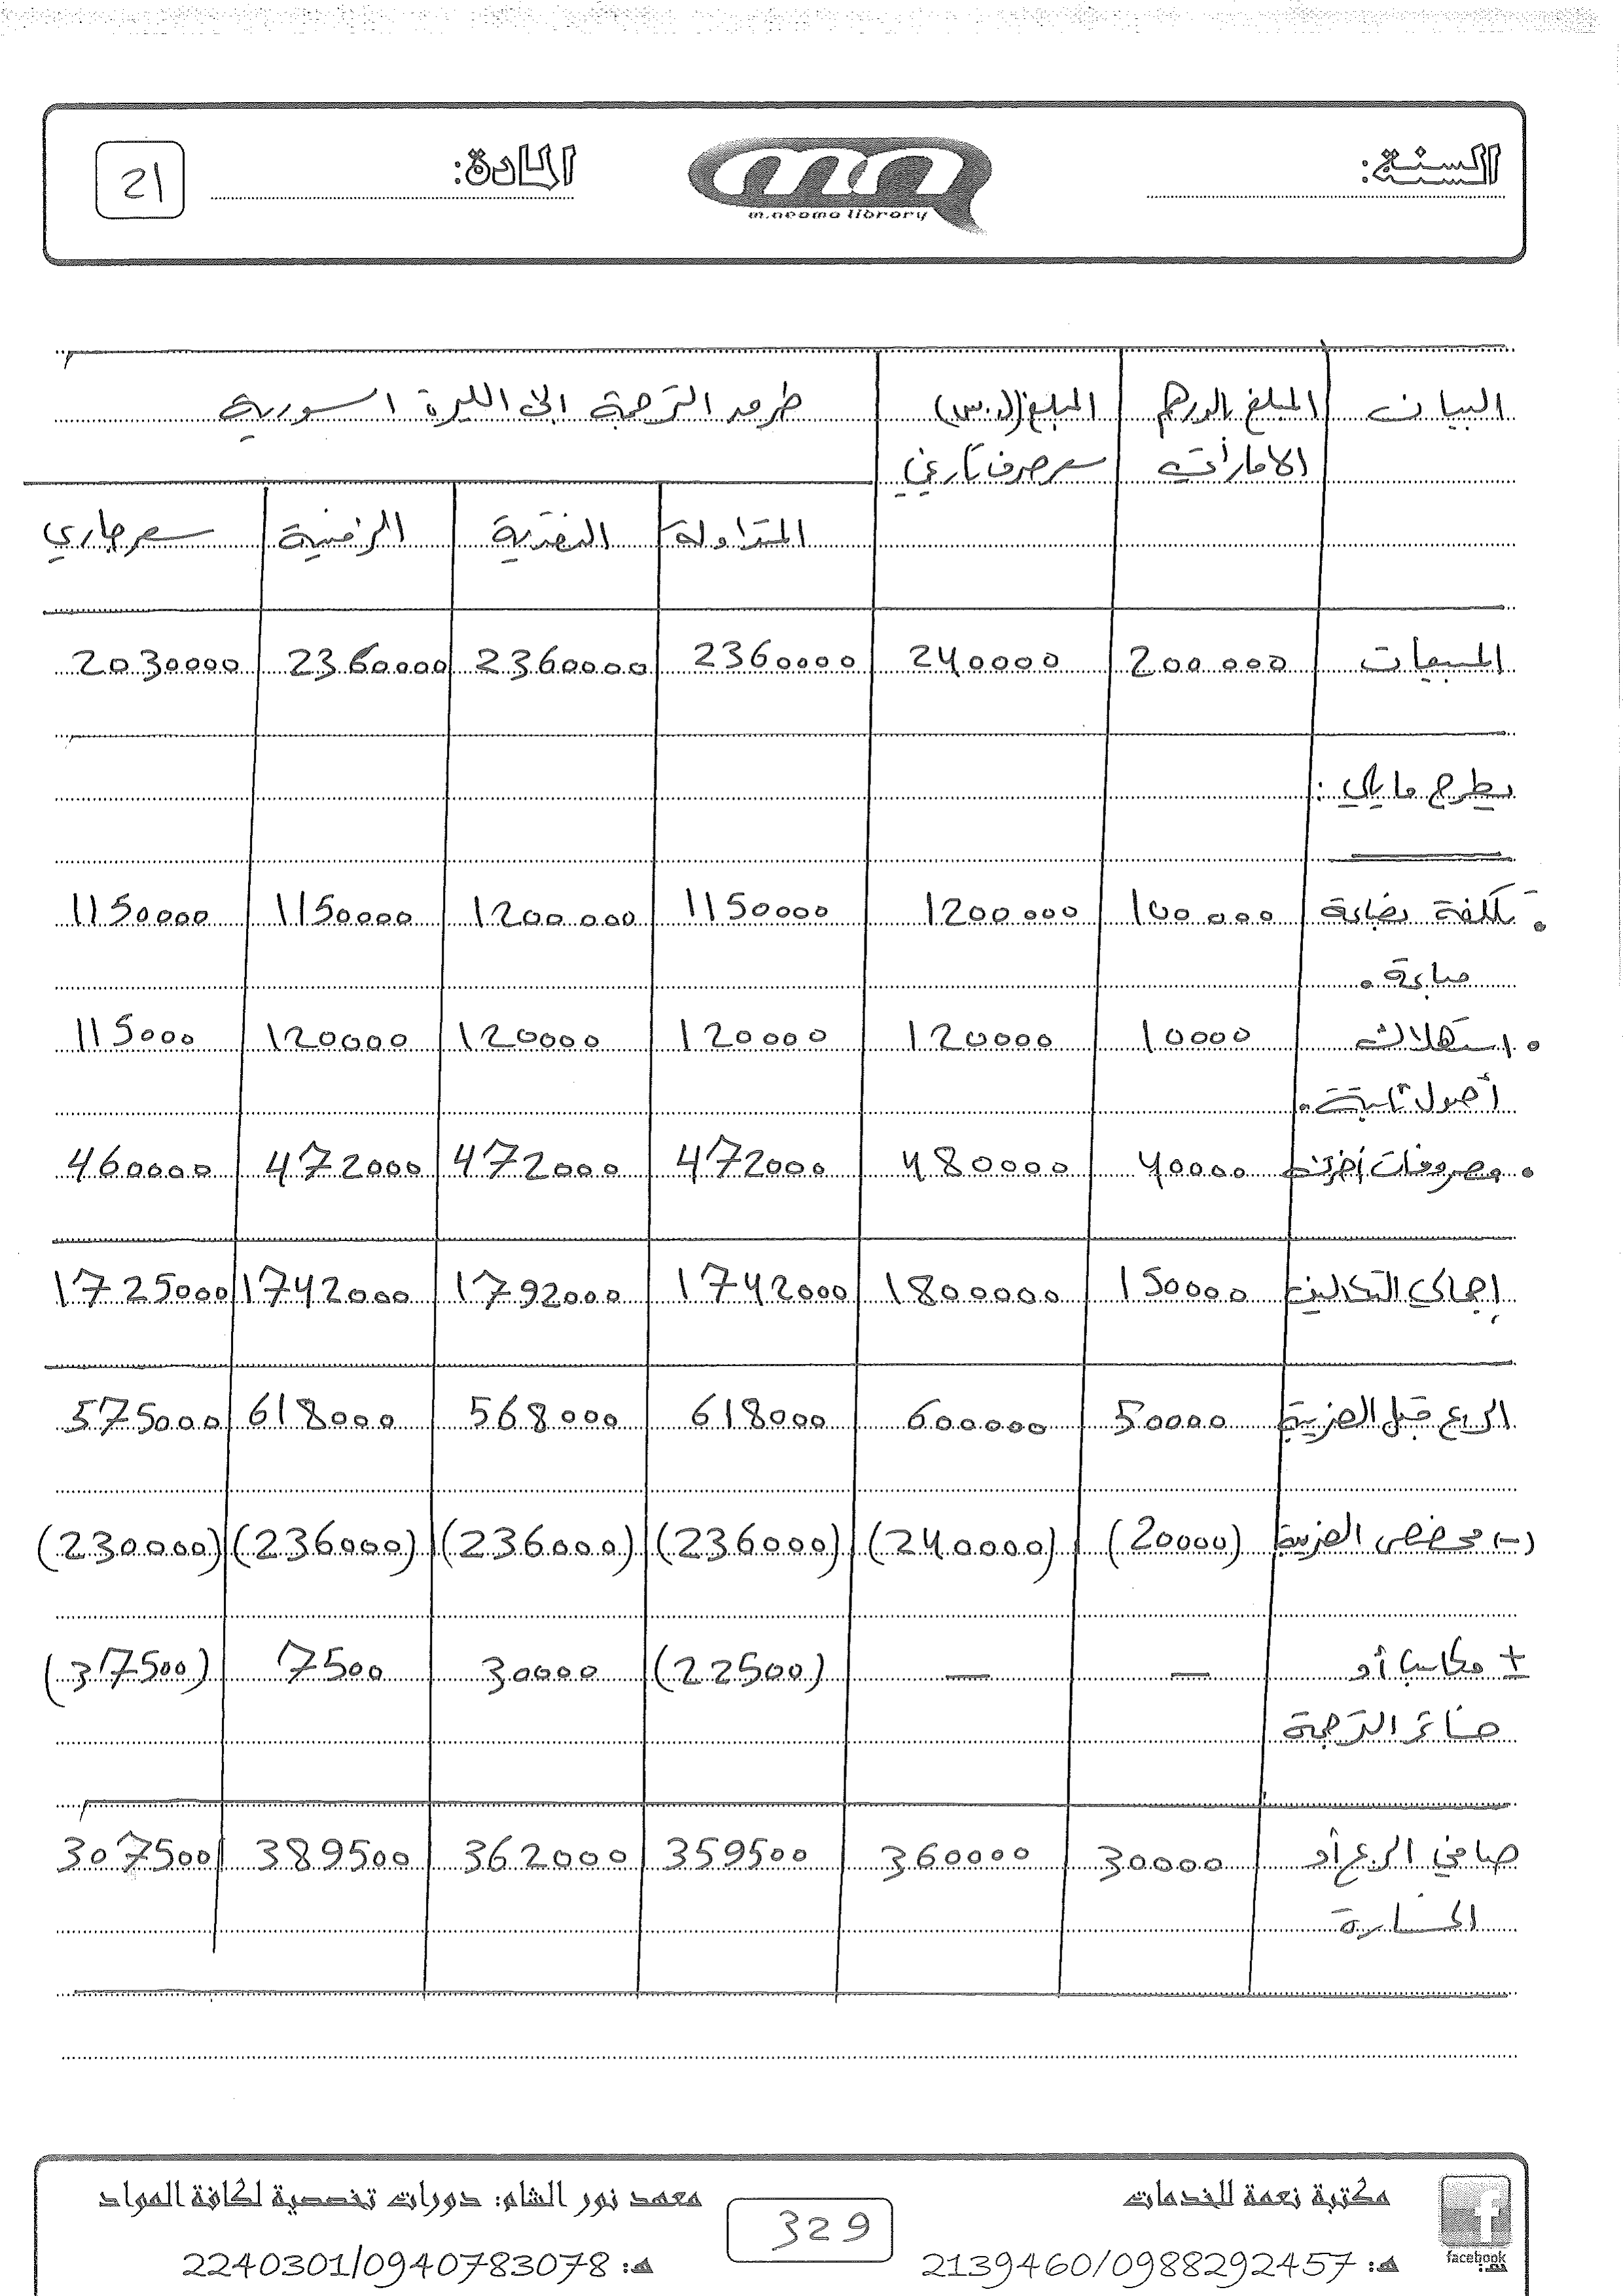 السنة:
m.neama library
المادة:
21
البيان المبلغ بالدرهم المبلغ (ل.س) طرق الترجمة إلى الليرة السورية
الاماراتي سعر صرف تاريخي
المتداولة النقدية الزمنية سعر جاري
المبيعات 200000 240000 2360000 2360000 2360000 2030000
يطرح مايلي:
• تكلفة بضاعة 100000 1200000 1150000 1200000 1150000 1150000
مباعة.
• استهلاك 10000 120000 120000 120000 120000 115000
أصول ثابتة.
• مصروفات أخرى 40000 480000 472000 472000 472000 460000
إجمالي التكاليف 150000 1800000 1742000 1792000 1742000 1725000
الربح قبل الضريبة 50000 600000 618000 568000 618000 575000
(-) مخصص الضريبة (20000) (240000) (236000) (236000) (236000) (230000)
± مكاسب أو — — (22500) 30000 7500 (37500)
خسائر الترجمة
صافي الربح أو 30000 360000 359500 362000 389500 307500
الخسارة
facebook
مكتبة نعمة للخدمات
هـ: 2139460/0988292457
329
معهد نور الشام: دورات تخصصية لكافة المواد
هـ: 2240301/0940783078